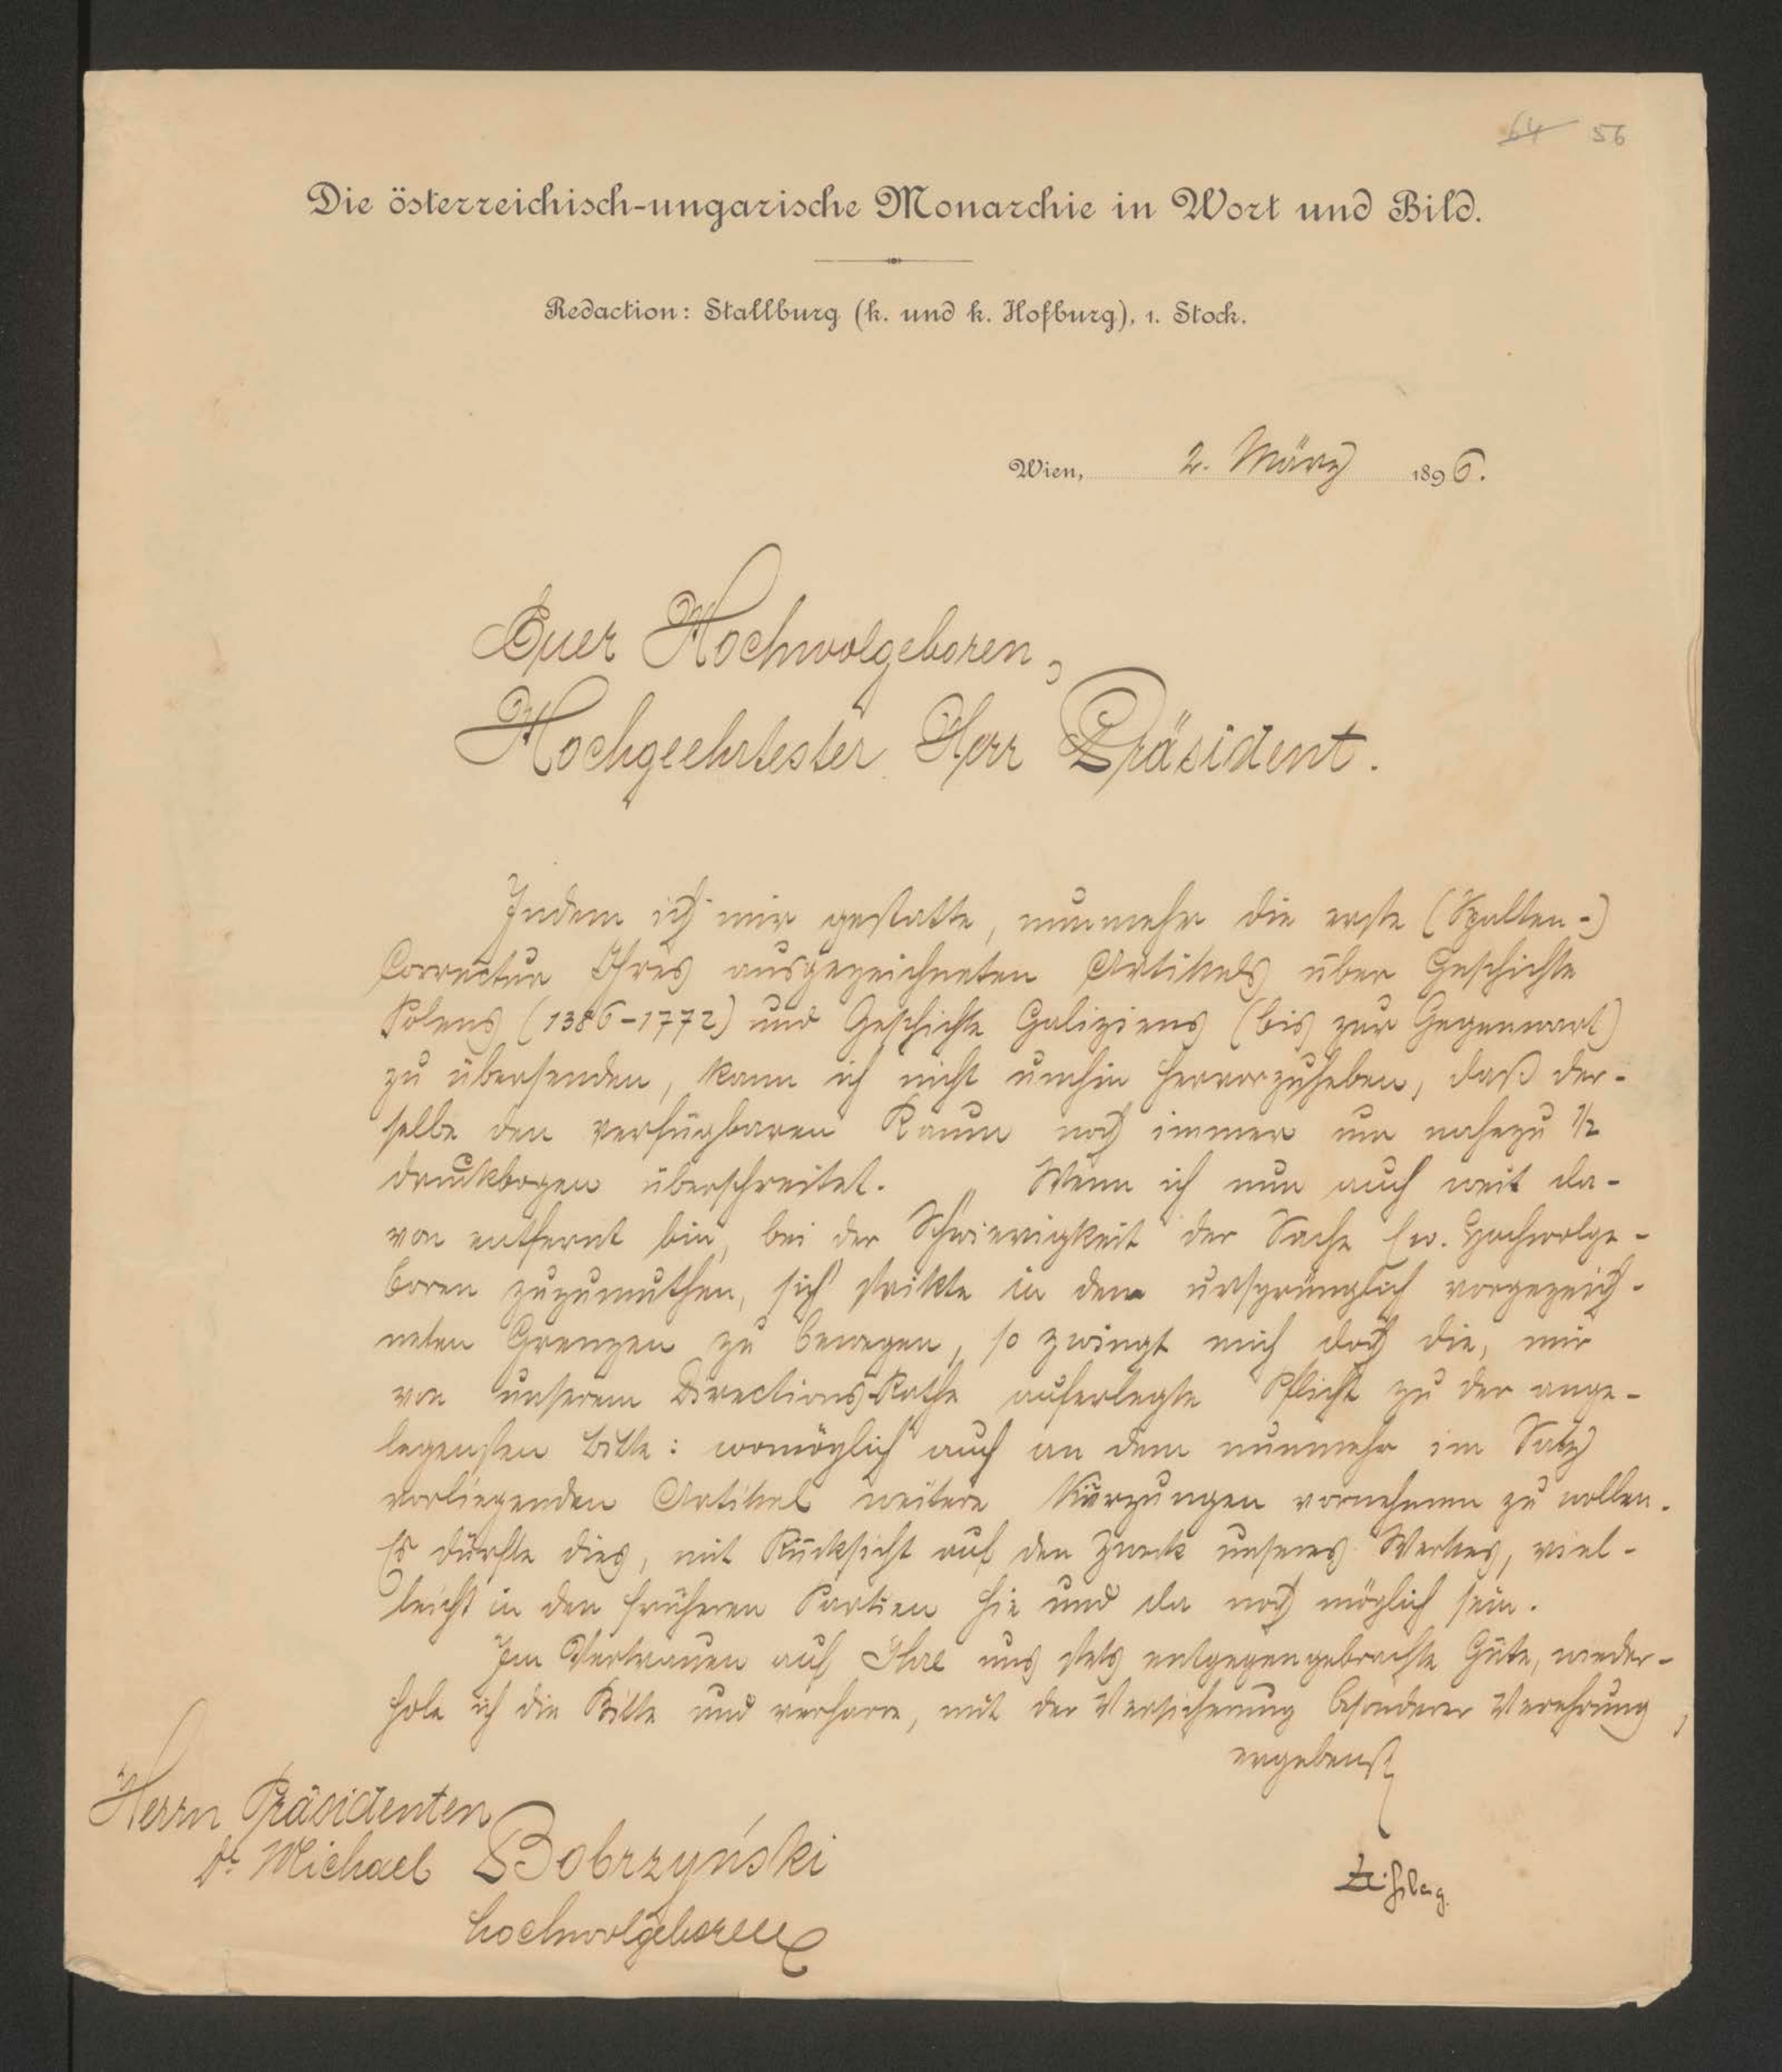 64 56
Die österreichisch-ungarische Monarchie in Wort und Bild.
Redaction: Stallburg (k. und k. Hofburg), 1. Stock.
Wien, 2. März 1896.
Euer Hochwolgeboren,
Hochgeehrtester Herr Präsident.
Indem ich mir gestatte, nunmehr die erste (Spalten-)
Correctur Ihres ausgezeichneten Artikels über Geschichte
Polens (1386-1772) und Geschichte Galiziens (bis zur Gegenwart)
zu übersenden, kann ich nicht umhin hervorzuheben, daß der-
selbe den verfügbaren Raum noch immer um nahezu 1/2
Druckbogen überschreitet. Wenn ich nun auch weit da-
von entfernt bin, bei der Schwierigkeit der Sache Ew. Hochwolge-
boren zuzumuthen, sich strikte in den ursprünglich vorgezeich-
neten Grenzen zu bewegen, so zwingt mich doch die, mir
von unserem Directions-Rathe auferlegte Pflicht zu der ange-
legensten Bitte: womöglich auch an dem nunmehr im Satz
vorliegenden Artikel weitere Kürzungen vornehmen zu wollen.
Es dürfte dies, mit Rücksicht auf den Zweck unseres Werkes, viel-
leicht in den früheren Partien hie und da noch möglich sein.
Im Vertrauen auf Ihre uns stets entgegengebrachte Güte, wieder-
hole ich die Bitte und verharre, mit der Versicherung besonderer Verehrung,
ergebenst
Herrn Präsidenten
Dr. Michael Bobrzyński
hochwolgeboren